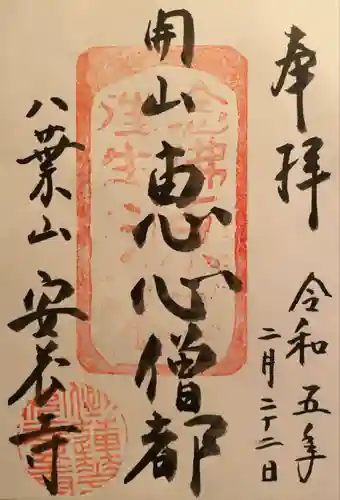 奉拝
令和五年
二月二十二日
開山
恵心僧都
八葉山
安養寺